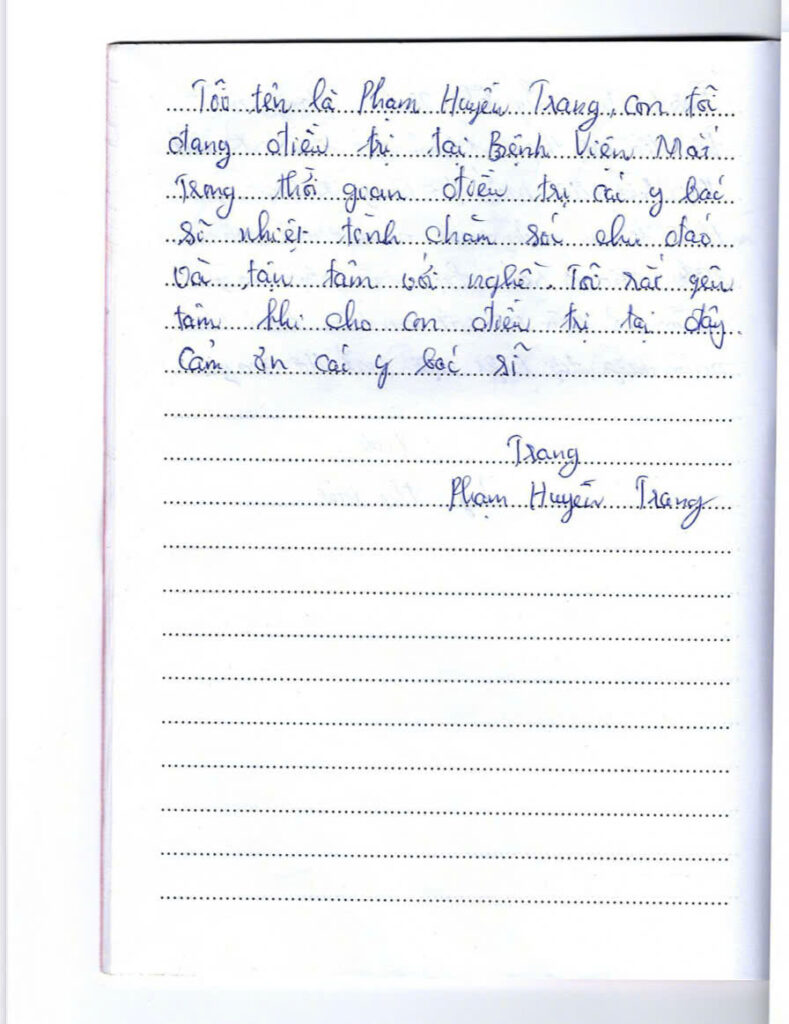 Tôi tên là Phạm Huyền Trang, con tôi
đang điều trị tại Bệnh Viện Mắt
Trong thời gian điều trị các y bác
sĩ nhiệt tình chăm sóc chu đáo
và tận tâm với nghề. Tôi rất yên
tâm khi cho con điều trị tại đây.
Cảm ơn các y bác sĩ
Trang
Phạm Huyền Trang